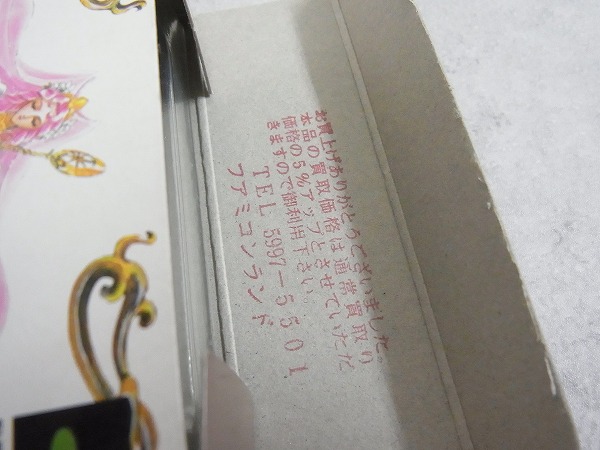 お買上げありがとうございました
本品の買取価格は通常買取り
価格の5%アップとさせていただ
きますので御利用下さい.
TEL 5997-5501
ファミコンランド